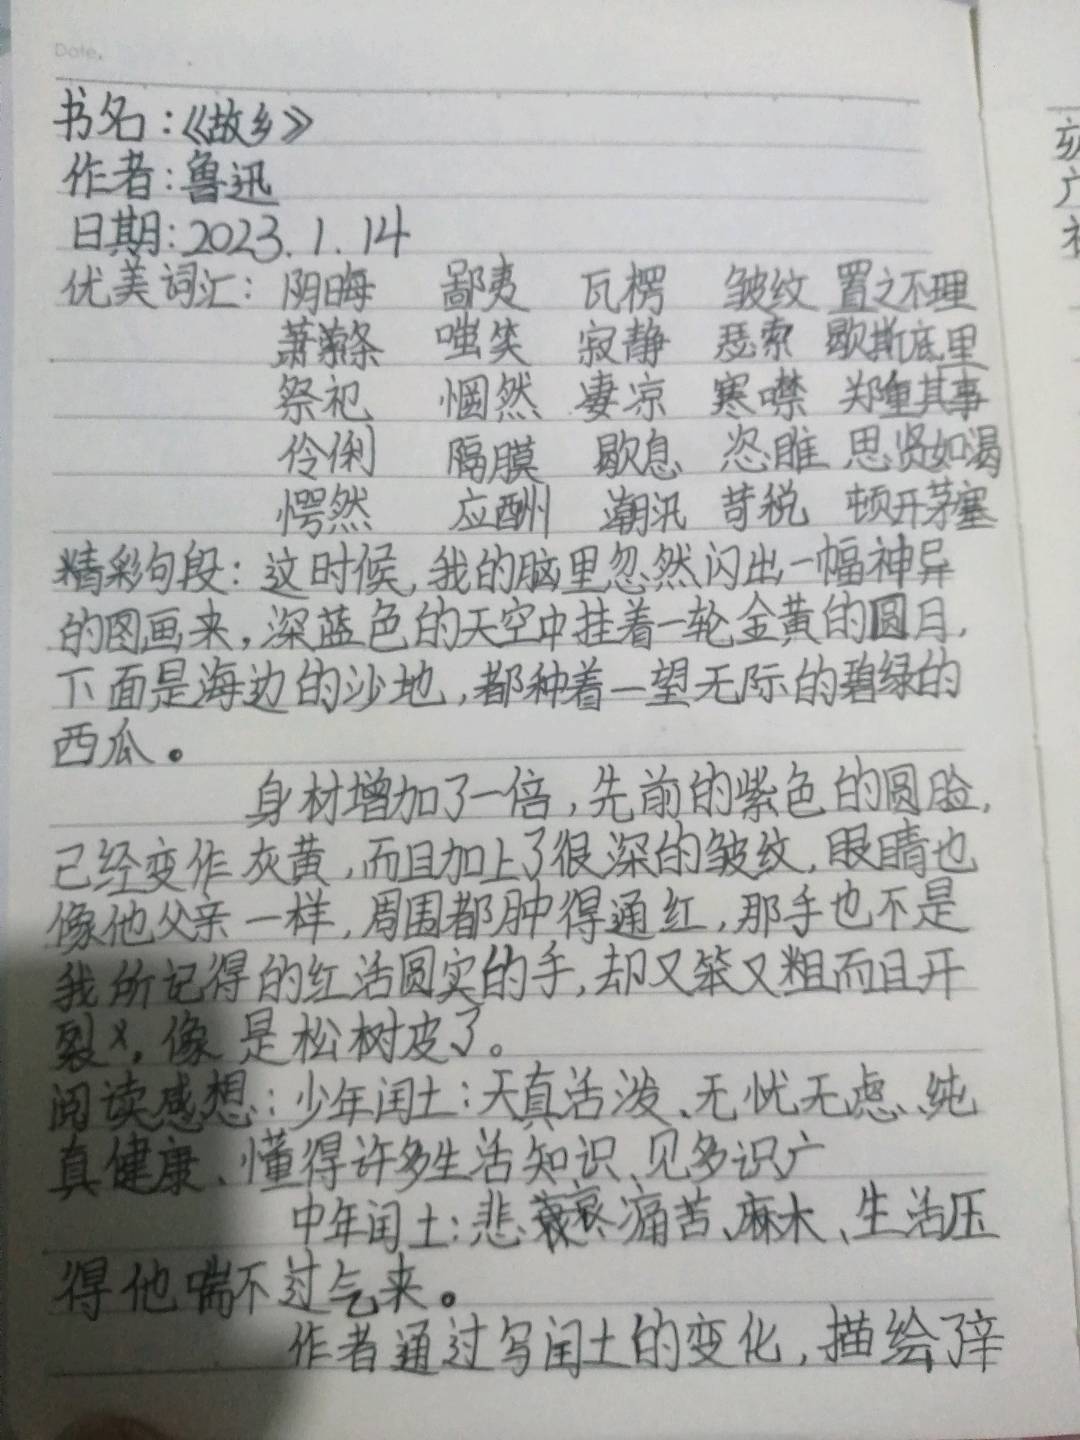 Date.
书名：《故乡》
作者：鲁迅
日期：2023.1.14
优美词汇：阴晦 鄙夷 瓦楞 皱纹 置之不理
萧条 嗤笑 寂静 瑟索 歇斯底里
祭祀 惘然 凄凉 寒噤 郑重其事
伶俐 隔膜 歇息 恣睢 思贤如渴
愕然 应酬 潮汛 苛税 顿开茅塞
精彩句段：这时候，我的脑里忽然闪出一幅神异
的图画来，深蓝色的天空中挂着一轮金黄的圆月，
下面是海边的沙地，都种着一望无际的碧绿的
西瓜。
身材增加了一倍，先前的紫色的圆脸，
已经变作灰黄，而且加上了很深的皱纹，眼睛也
像他父亲一样，周围都肿得通红，那手也不是
我所记得的红活圆实的手，却又笨又粗而且开
裂，像是松树皮了。
阅读感想：少年闰土：天真活泼、无忧无虑、纯
真健康、懂得许多生活知识、见多识广
中年闰土：悲哀痛苦、麻木、生活压
得他喘不过气来。
作者通过写闰土的变化，描绘了辛